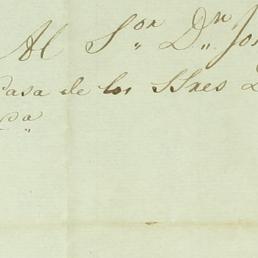 Al S.ᵒʳ D.ⁿ Jo
Casa de los SSres